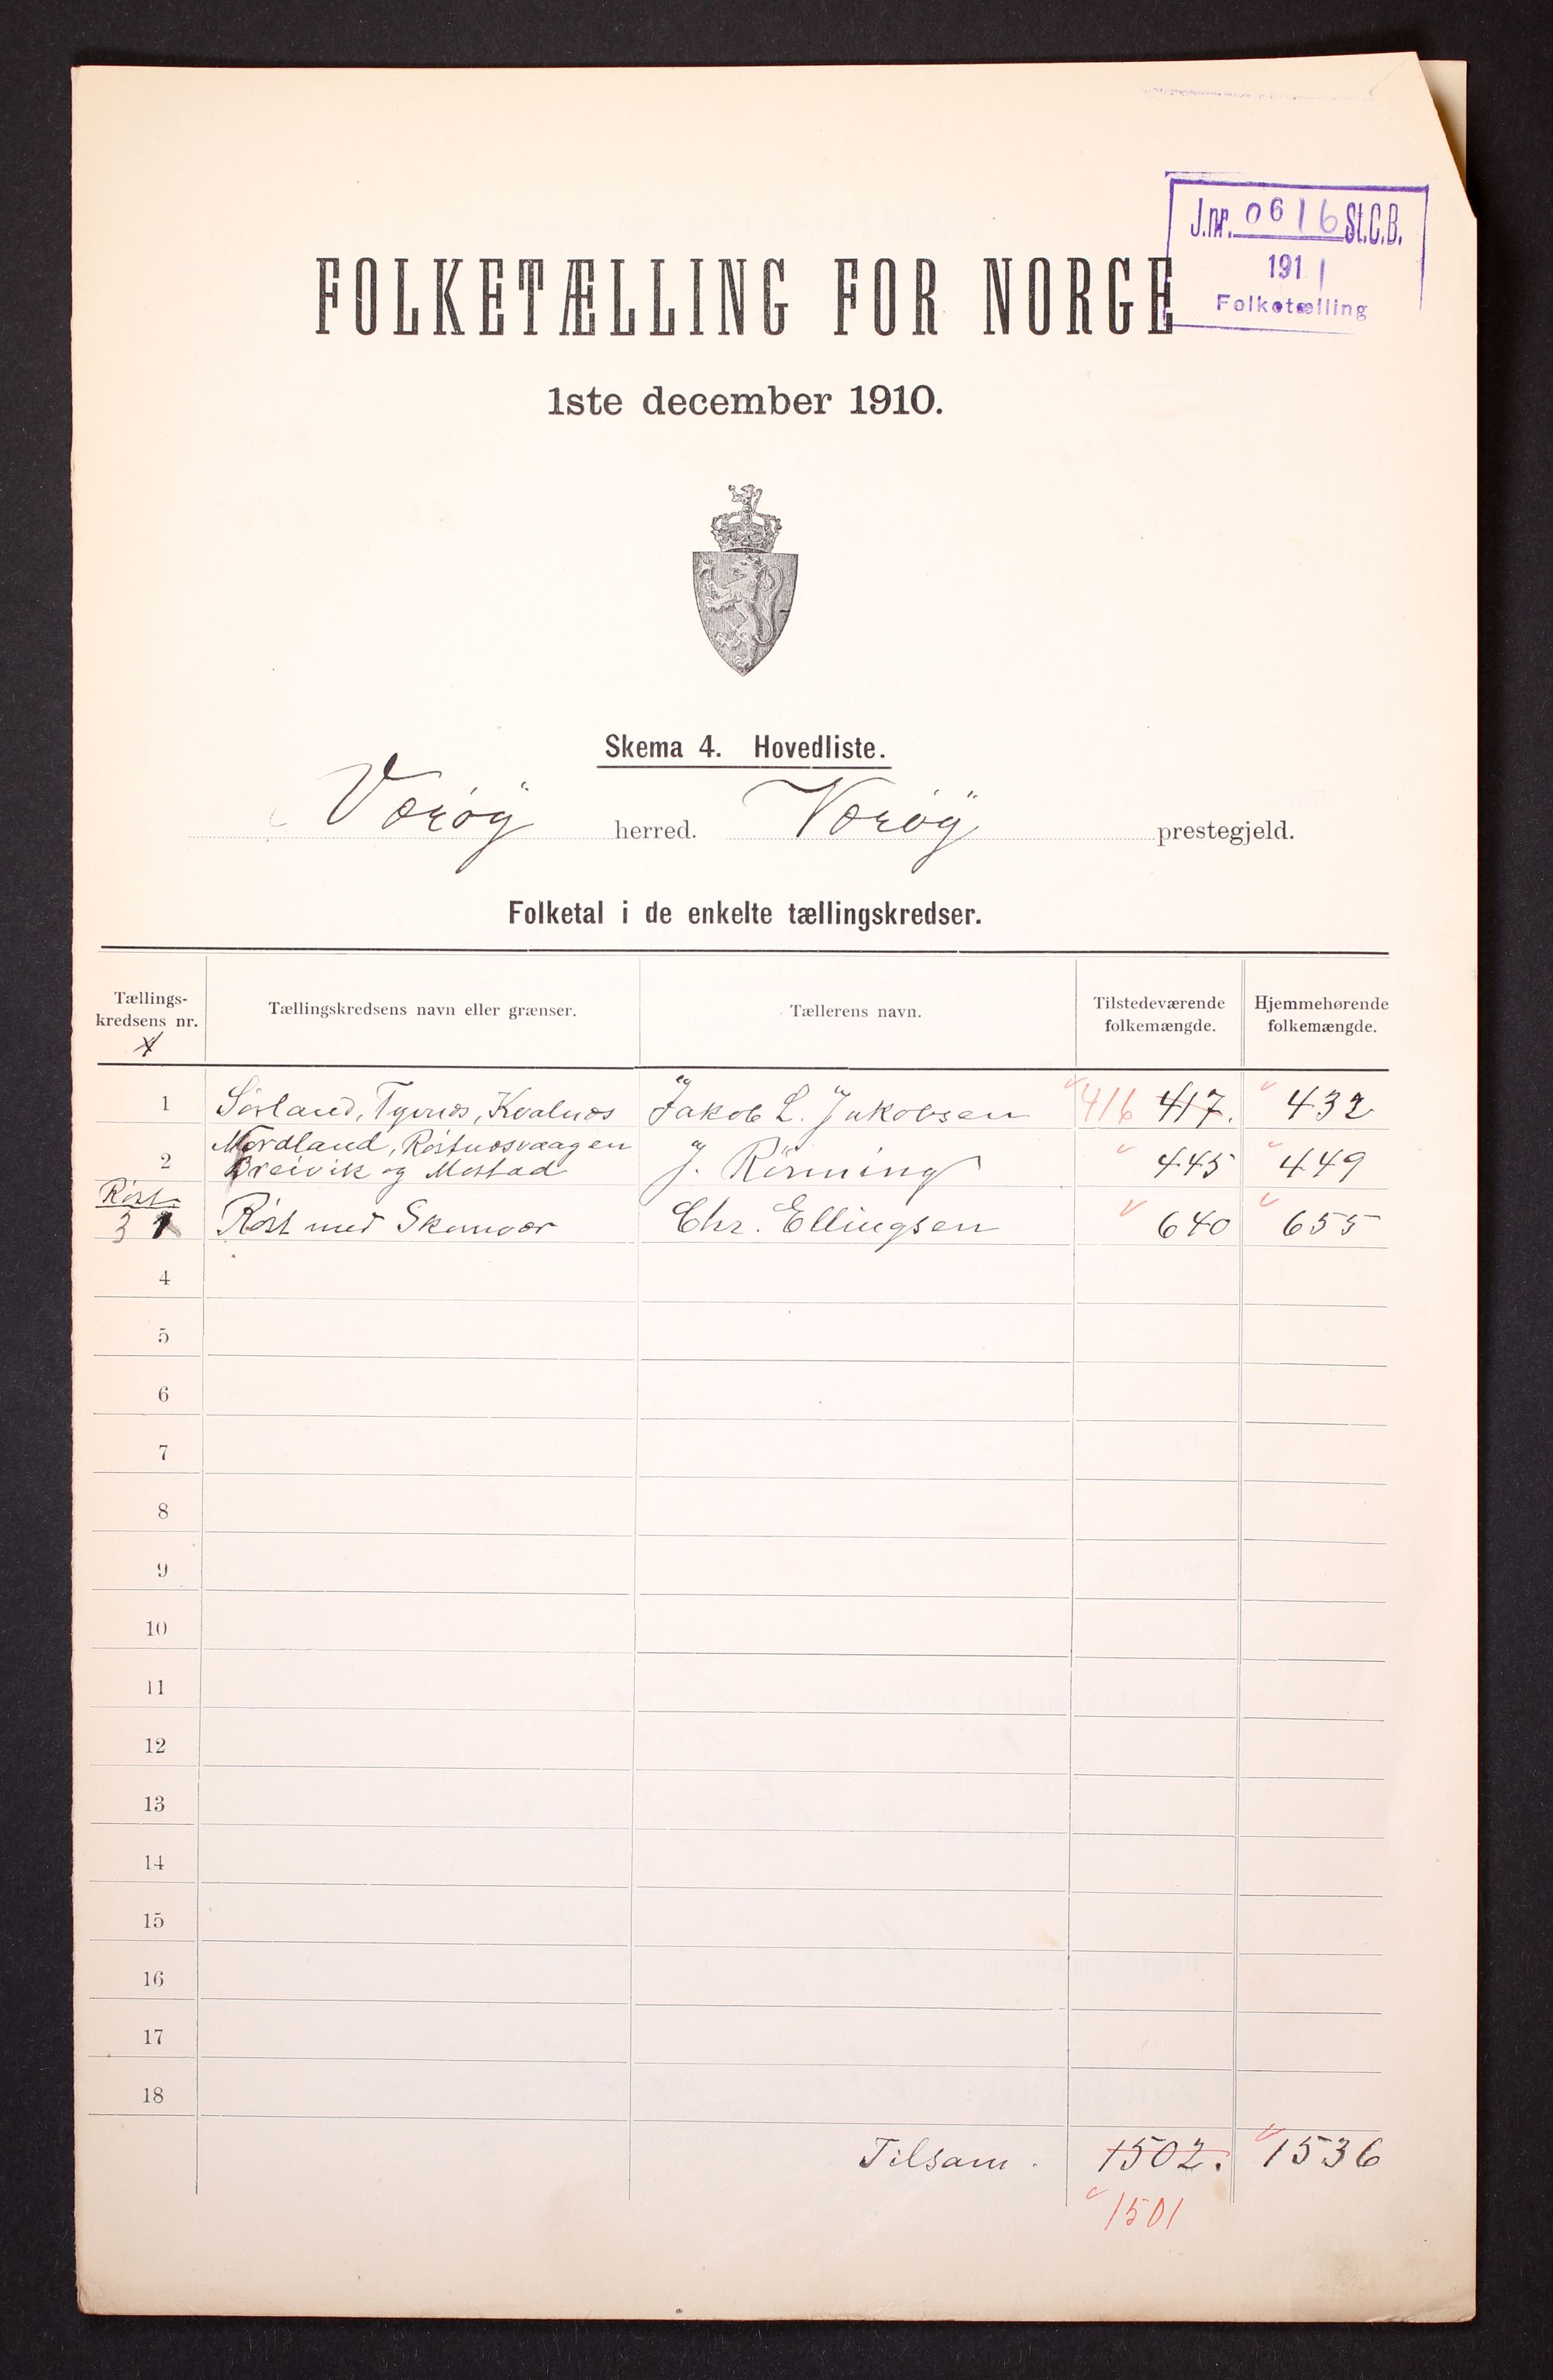 J.nr. 0616 St.C.B.
1911
Folketælling
FOLKETÆLLING FOR NORGE
1ste december 1910.
Skema 4. Hovedliste.
Værøy herred. Værøy prestegjeld.
Folketal i de enkelte tællingskredser.
Tællings-kredsens nr. Tællingskredsens navn eller grænser. Tællerens navn. Tilstedeværende folkemængde. Hjemmehørende folkemængde.
1 Sørland, Tyvnes, Kvalnæs Jakob L. Jakobsen 416 417. 432
Nordland, Røstnæsvaagen
2 Breivik og Mostad J. Rønning 445 449
Røst
3 1 Røst med Skomvær Chr. Ellingsen 640 655
4
5
6
7
8
9
10
11
12
13
14
15
16
17
18
Tilsam. 1502. 1536
1501